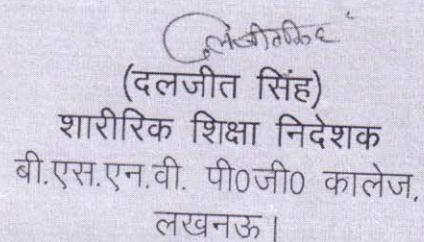 (दलजीत सिंह)
शारीरिक शिक्षा निदेशक
बी.एस.एन.वी. पी0जी0 कालेज,
लखनऊ।